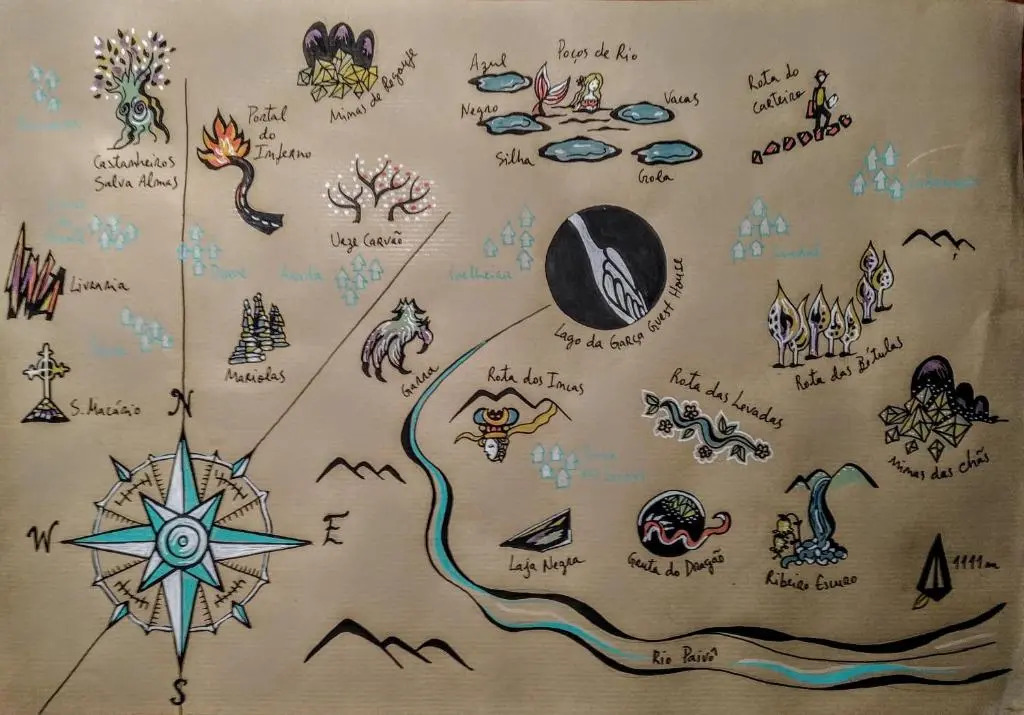 Castanheiros
Salva Almas
Portal
do
Inferno
Minas de Regoufe
Azul
Poços de Rio
Negro
Vacas
Silha
Gola
Rota do
carteiro
Ueze Carvão
Livraria
Mariolas
Garra
Lago da Garça Guest House
Rota das Bétulas
S. Macário
Rota dos Incas
Rota das Levadas
Minas das Chãs
N
W
E
S
Laja Negra
Gruta do Dragão
Ribeiro Escuro
1111 m
Rio Paivô